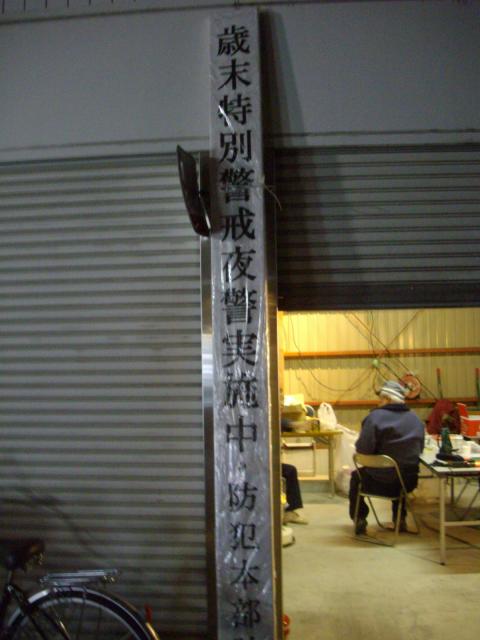 歳末特別警戒夜警実施中・防犯本部